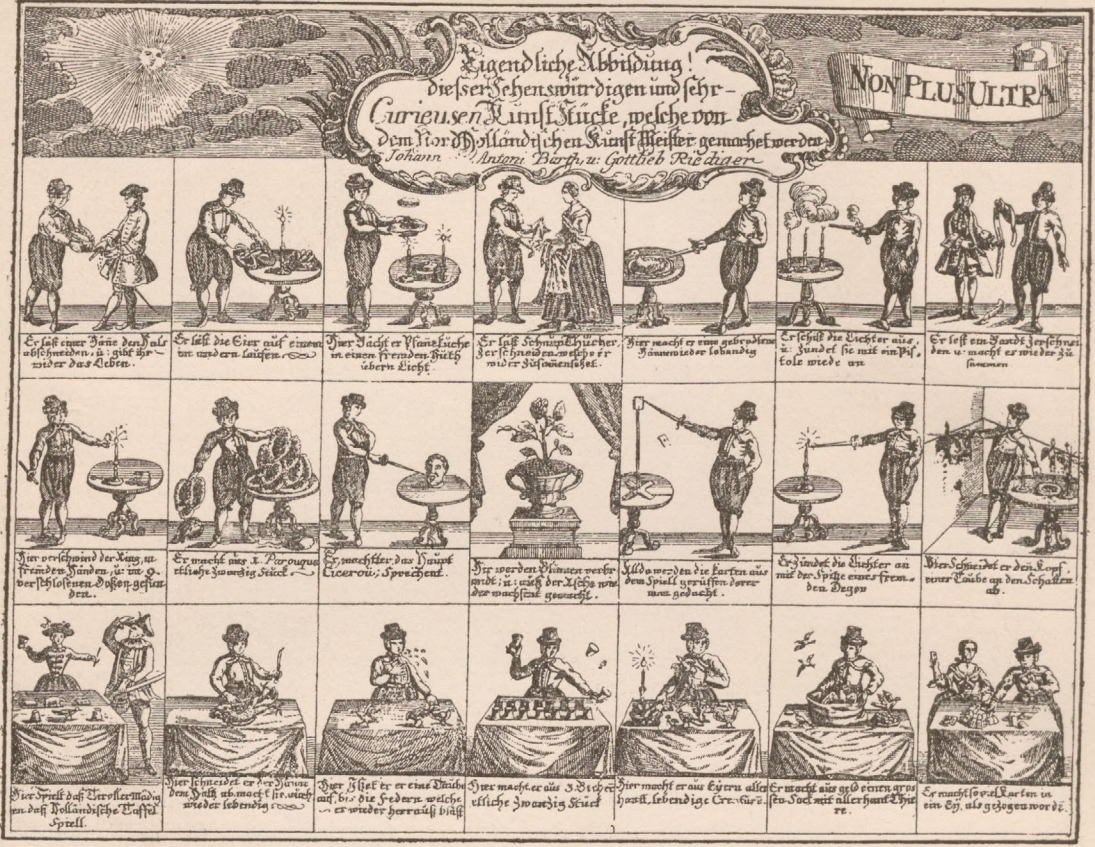 Eigendliche Abbildung!
dieser Sehenswürdigen und sehr-
Curieusen Kunst Stücke, welche von
dem Nord Holländischen Kunst Meister gemachet werden
Johann Antoni Barth, u: Gottlieb Riediger
NON PLUS ULTRA
Er läst einer Häne den Hals
abschneiden, u: gibt ihr
wider das Leben.
Er läst die Eier auf einem
im andern laufen.
Hier bächt er Pfane Kuche
in einen fremden Huth
übern Licht
Er last Schnup Thücher,
Zerschneiden welche er
wider Zusamensetzet.
Hier macht er eine gebradene
Hännen wieder lebandig
Er schist die Lichter aus,
u: zundet sie mit ein Pis,
tole wiede an
Er lest ein Bandt Zerschnei
den u: macht es wieder zu
sammen
Hier verschwind der Ring, in
fremden Handen, u: in
verschlosenen gefun
den.
Er macht aus 1. Parouque
etliche Zwanzig Stück
Er machtter, das Haupt
Cicerou; Sprechent.
Hir werden Blumen verbr
andt; u: auß der Asche wie
der wachsent gemacht.
Allda werden die Karten aus
dem Spiell geruffen derer
man gedacht.
Er Zündet die Lichter an
mit der Spitze eines frem-
den Degen
Hier Schneidet er den Kopf,
einer Taube an den Schatten
ab.
Hier Spielt daß
en daß Holländische Taffel
Spiell.
Hier schneidet er der Hänne
den Halß ab, macht sie auch
wieder lebendig
Hier Isset er er eine Taube
auf, bis die Federn welche
er wieder herrauß bläst
Hier macht er aus 3. Becher
etliche Zwantzig Stuck
Hier macht er aus Eyern aller
handt, lebendige Creaturd.
Er macht aus geld einen gros
sen Sack mit allerhant Thie
re.
Er macht so viel Karten in
ein Ey, als gezogen word.